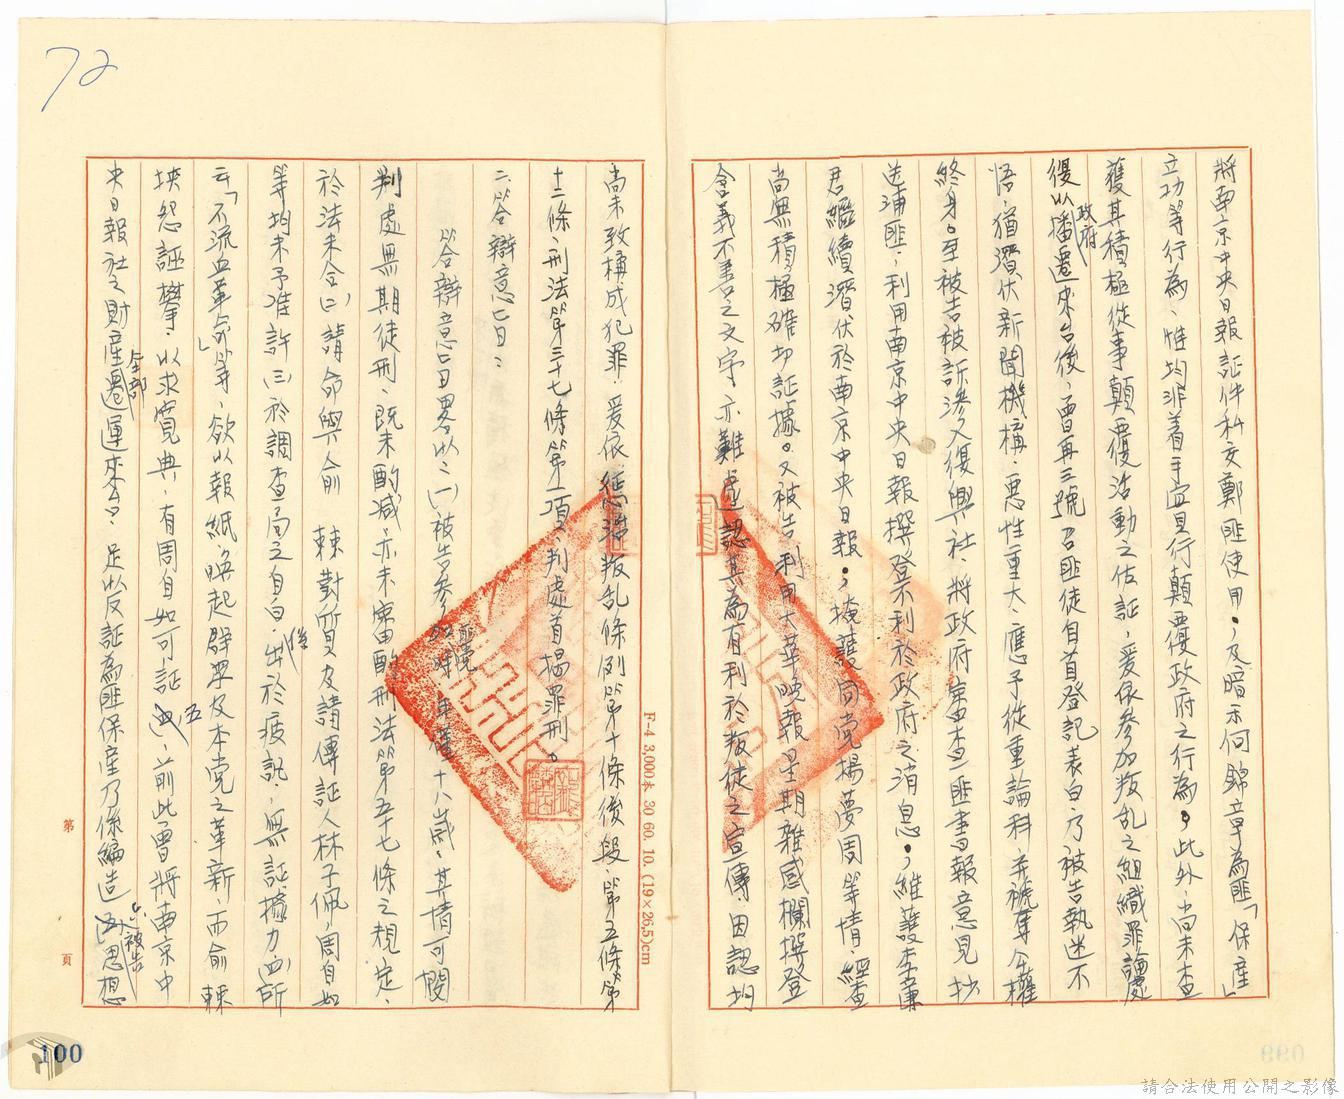 72
將南京中央日報証件私交鄭匪使用，及暗示何錦章為匪「保產」
立功等行為，惟均非着手實行顛覆政府之行為，此外，尚未查
獲其積極從事顛覆活動之佐証，爰依參加叛乱之組織罪論處
政府
復以播遷來台後，曾再三號召匪徒自首登記，表白乃被告執迷不
悟，猶潛伏新聞機構，惡性重大，應予從重論科，并褫奪公權
終身。至被告被訴滲入復興社，將政府審查匪書報意見抄
送浦匪，利用南京中央日報撰登不利於政府之消息，維護李廉
君繼續潛伏於南京中央日報，掩護同党楊夢周等情，經查
尚無積極確切証據。又被告利用大華晚報星期雜感欄撰登
含義不善之文字，亦難遽認其為有利於叛徒之宣傳，因認均
尚未致構成犯罪，爰依懲治叛乱條例第十條後段、第五條、第
十二條、刑法第三十七條第一項，判處首揭罪刑。
二、答辯意旨：
答辯意旨畧以：(一)被告參加時年僅十八歲，其情可憫
判處無期徒刑，既未酌減，亦未審酌刑法第五十七條之規定，
於法未合(二)請命與俞棘對質及請傳証人林子佩，周自如
等，均未予准許(三)於調查局之自白，出於疲訊後，無証據力(四)所
云「不流血革命」等，欲以報紙喚起群眾及本党之革新，而俞棘
挾怨誣攀，以求寬典，有周自如可証(五)前此曾將南京中
央日報社之財產全部遷運來台，足以反証為匪保產乃係編造(六)被告思想
F-4 3,000本 30 60. 10. (19×26,5)cm
第 頁
100
請合法使用公開之影像